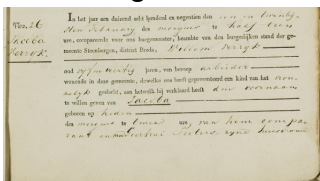 Nro. 26
Jacoba
Verryk.
In het jaar een duizend acht honderd en negentien den een en twintig-
sten february des morgens te half tien
ure, compareerde voor ons burgemeester, beambte van den burgerlijken stand der ge-
meente Steenbergen, district Breda, Willem Verryk
oud vyfendertig jaren, van beroep arbeider
wonende in deze gemeente, dewelke ons heeft gepresenteerd een kind van het vrou-
welyk geslacht, aan hetwelk hij verklaard heeft den voornaam
te willen geven van Jacoba
geboren op heden
des morgens te twee ure, van hem compa-
rant en
Pieters zyne huisvrouw